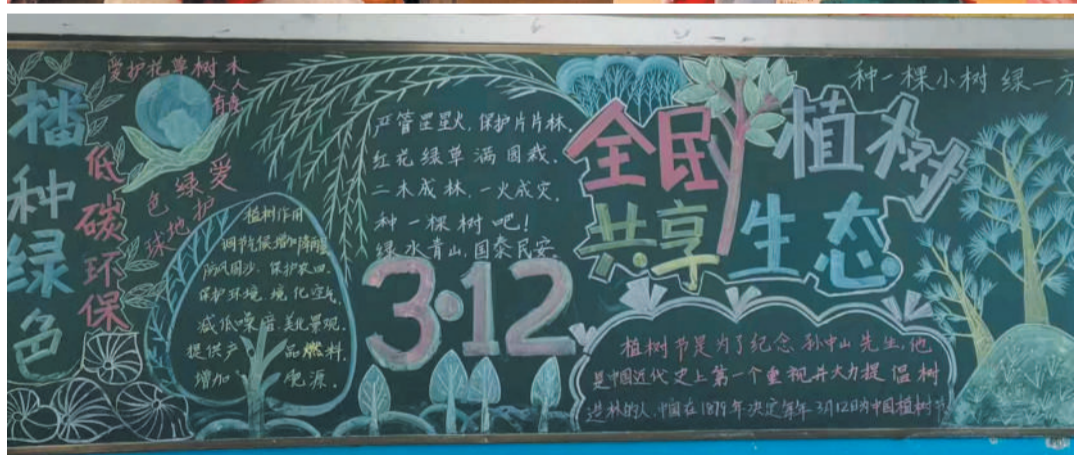 播种绿色
低碳环保
爱护花草树木
人人有责
爱护
绿色
地球
植树作用
调节气候增加降雨
防风固沙.保护农田.
保护环境 境化空气.
减低噪音.美化景观.
提供产品燃料.
增加肥源.
严管星星火,保护片片林.
红花绿草满园栽.
二木成林.一火成灾.
种一棵树吧!
绿水青山,国泰民安.
3·12
全民植树
共享生态
种一棵小树绿一方
植树节是为了纪念孙中山先生,他
是中国近代史上第一个重视并大力提倡树
造林的人.中国在1979年决定每年3月12日为中国植树节